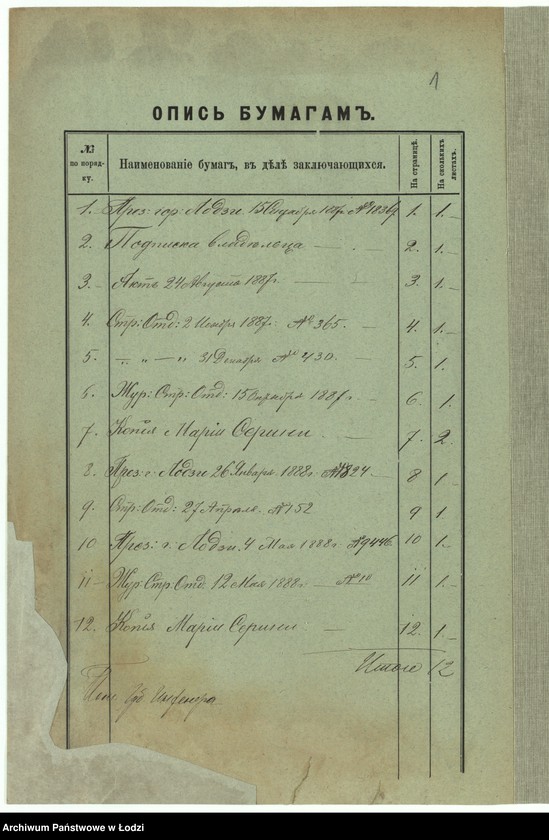 1
ОПИСЬ БУМАГАМЪ.
№ по поряд-ку. Наименованіе бумагъ, въ дѣлѣ заключающихся. На страницѣ. На сколькихъ листахъ.
1. През: гор: Лодзи 15 1887г. № 1. 1.
2. Подписка владѣльца 2. 1.
3. Актъ 24 Августа 1887г. 3. 1.
4. Стр: Отд: 2 1887г. № 365. 4. 1.
5. — „ — „ 31 Декабря № 430. 5. 1.
6. Жур: Стр: Отд: 15 1887г. 6. 1.
7. Копія Маріи 7. 2.
8. През: г. Лодзи 26 Января 1888г. 8 1
9. Стр: Отд: 27 Апрѣля. № 152 9 1
10 През: г. Лодзи. 4 Мая 1888г. № 9446 10 1.
11 Жур: Стр: Отд. 12 Мая 1888г. № 10 11 1.
12. Копія Маріи 12. 1
Итого 12
Инженера
Archiwum Państwowe w Łodzi